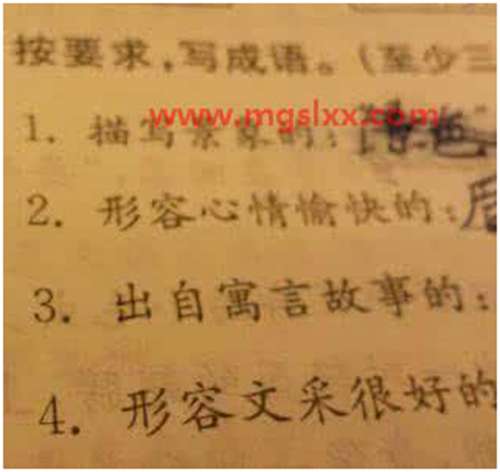 按要求，写成语。（至少三
www.mgslxx.com
1. 描写景象的：
2. 形容心情愉快的：
3. 出自寓言故事的：
4. 形容文采很好的